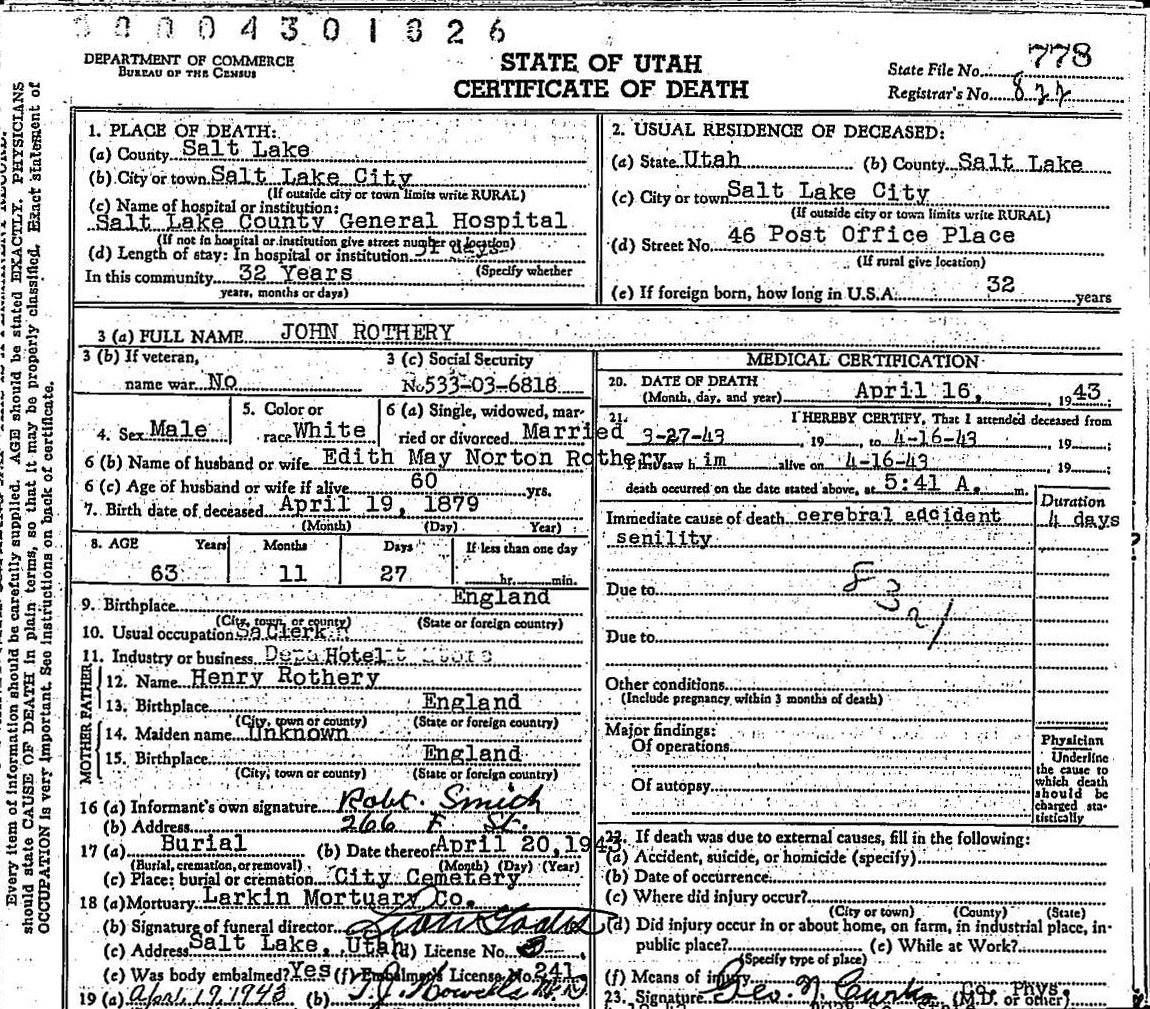 00004301826
DEPARTMENT OF COMMERCE
BUREAU OF THE CENSUS
STATE OF UTAH
CERTIFICATE OF DEATH
State File No. 778
Registrar's No. 822
Every item of information should be carefully supplied. AGE should be stated EXACTLY. PHYSICIANS
should state CAUSE OF DEATH in plain terms, so that it may be properly classified. Exact statement of
OCCUPATION is very important. See instructions on back of certificate.
1. PLACE OF DEATH:
(a) County Salt Lake
(b) City or town Salt Lake City
(If outside city or town limits write RURAL)
(c) Name of hospital or institution:
Salt Lake County General Hospital
(If not in hospital or institution give street number or location)
(d) Length of stay: In hospital or institution days
(Specify whether
In this community 32 Years
years, months or days)
2. USUAL RESIDENCE OF DECEASED:
(a) State Utah (b) County Salt Lake
(c) City or town Salt Lake City
(If outside city or town limits write RURAL)
(d) Street No. 46 Post Office Place
(If rural give location)
(e) If foreign born, how long in U.S.A. 32 years
3 (a) FULL NAME JOHN ROTHERY
3 (b) If veteran,
name war No
3 (c) Social Security
No 533-03-6818
4. Sex Male
5. Color or
race White
6 (a) Single, widowed, mar-
ried or divorced Married
6 (b) Name of husband or wife Edith May Norton Rothery
6 (c) Age of husband or wife if alive 60 yrs.
7. Birth date of deceased April 19, 1879
(Month) (Day) Year)
8. AGE Years Months Days If less than one day
63 11 27 hr. min.
9. Birthplace England
(City, town, or county) (State or foreign country)
10. Usual occupation Clerk
11. Industry or business Hotel
FATHER
12. Name Henry Rothery
13. Birthplace England
(City, town or county) (State or foreign country)
MOTHER
14. Maiden name Unknown
15. Birthplace England
(City, town or county) (State or foreign country)
16 (a) Informant's own signature Robt. Smith
(b) Address 266 F St.
17 (a) Burial (b) Date thereof April 20, 1943
(Burial, cremation, or removal) (Month) (Day) (Year)
(c) Place: burial or cremation City Cemetery
18 (a) Mortuary Larkin Mortuary Co.
(b) Signature of funeral director
(c) Address Salt Lake, Utah (d) License No.
(e) Was body embalmed? Yes (f) Embalmer's License No. 241
19 (a) April 19, 1943 (b) T.J. Howells M.D.
MEDICAL CERTIFICATION
20. DATE OF DEATH
(Month, day, and year) April 16, 1943;
21. I HEREBY CERTIFY, That I attended deceased from
3-27-43, 19 , to 4-16-43, 19 ;
I last saw him alive on 4-16-43, 19 ;
death occurred on the date stated above, at 5:41 A. m.
Duration
Immediate cause of death cerebral accident 4 days
senility
Due to
Due to
Other conditions
(Include pregnancy within 3 months of death)
Major findings:
Of operations
Of autopsy
Physician
Underline
the cause to
which death
should be
charged sta-
tistically
22. If death was due to external causes, fill in the following:
(a) Accident, suicide, or homicide (specify)
(b) Date of occurrence
(c) Where did injury occur?
(City or town) (County) (State)
(d) Did injury occur in or about home, on farm, in industrial place, in-
public place? (e) While at Work?
(Specify type of place)
(f) Means of injury
Co. Phys.
23. Signature Geo. N. Curtis (M.D. or other)